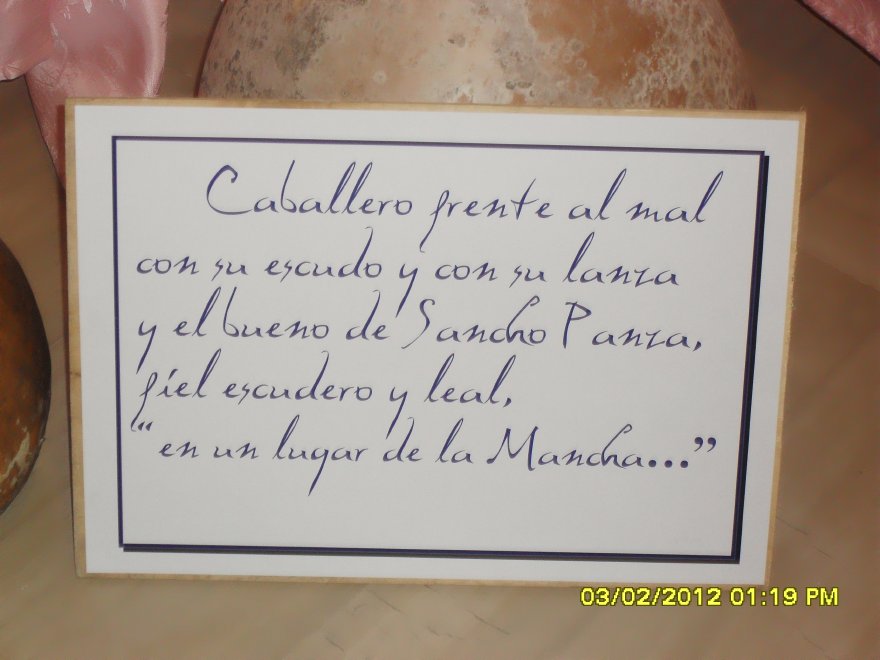 Caballero frente al mal
con su escudo y con su lanza
y el bueno de Sancho Panza,
fiel escudero y leal,
“en un lugar de la Mancha...”
03/02/2012 01:19 PM